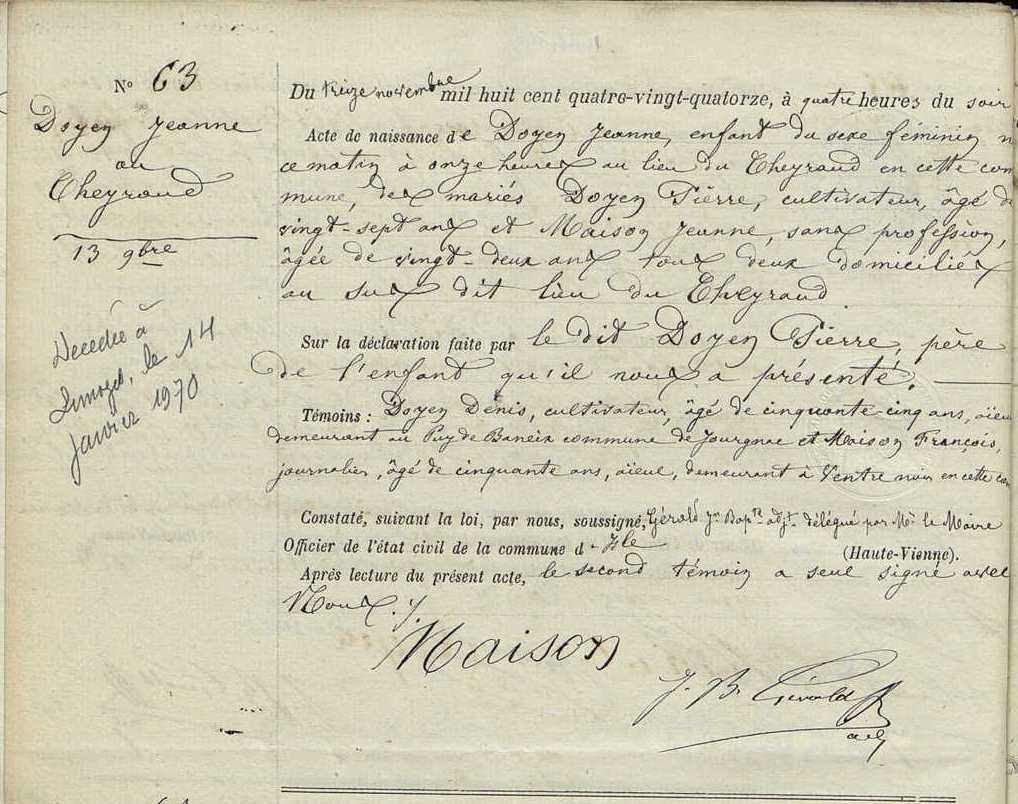 N° 63
Doyen Jeanne
au
Theyraud
13 9bre
Decedée à
Limoges, le 14
Janvier 1970
Du treize novembre mil huit cent quatre-vingt-quatorze, à quatre heures du soir
Acte de naissance de Doyen Jeanne, enfant du sexe féminin n
ce matin à onze heures au lieu du Theyraud en cette com
mune, des mariés Doyen Pierre, cultivateur, âgé de
vingt-sept ans et Maison Jeanne, sans profession,
âgée de vingt-deux ans tous deux domiciliés
au sus dit lieu du Theyraud
Sur la déclaration faite par le dit Doyen Pierre, père
de l'enfant qu'il nous a présenté.
Témoins : Doyen Dénis, cultivateur, âgé de cinquante-cinq ans, aïeu
demeurant au Puy de Baneix commune de Jourgnac et Maison François,
journalier, âgé de cinquante ans, aïeul, demeurant à Ventre noir en cette com
Constaté, suivant la loi, par nous, soussigné, Gérald Jn Bapte adjt délégué par Mr le Maire
Officier de l'état civil de la commune d'Isle (Haute-Vienne).
Après lecture du présent acte, le second témoin a seul signé avec
Nous.
Maison
J. B. Gérald
adj